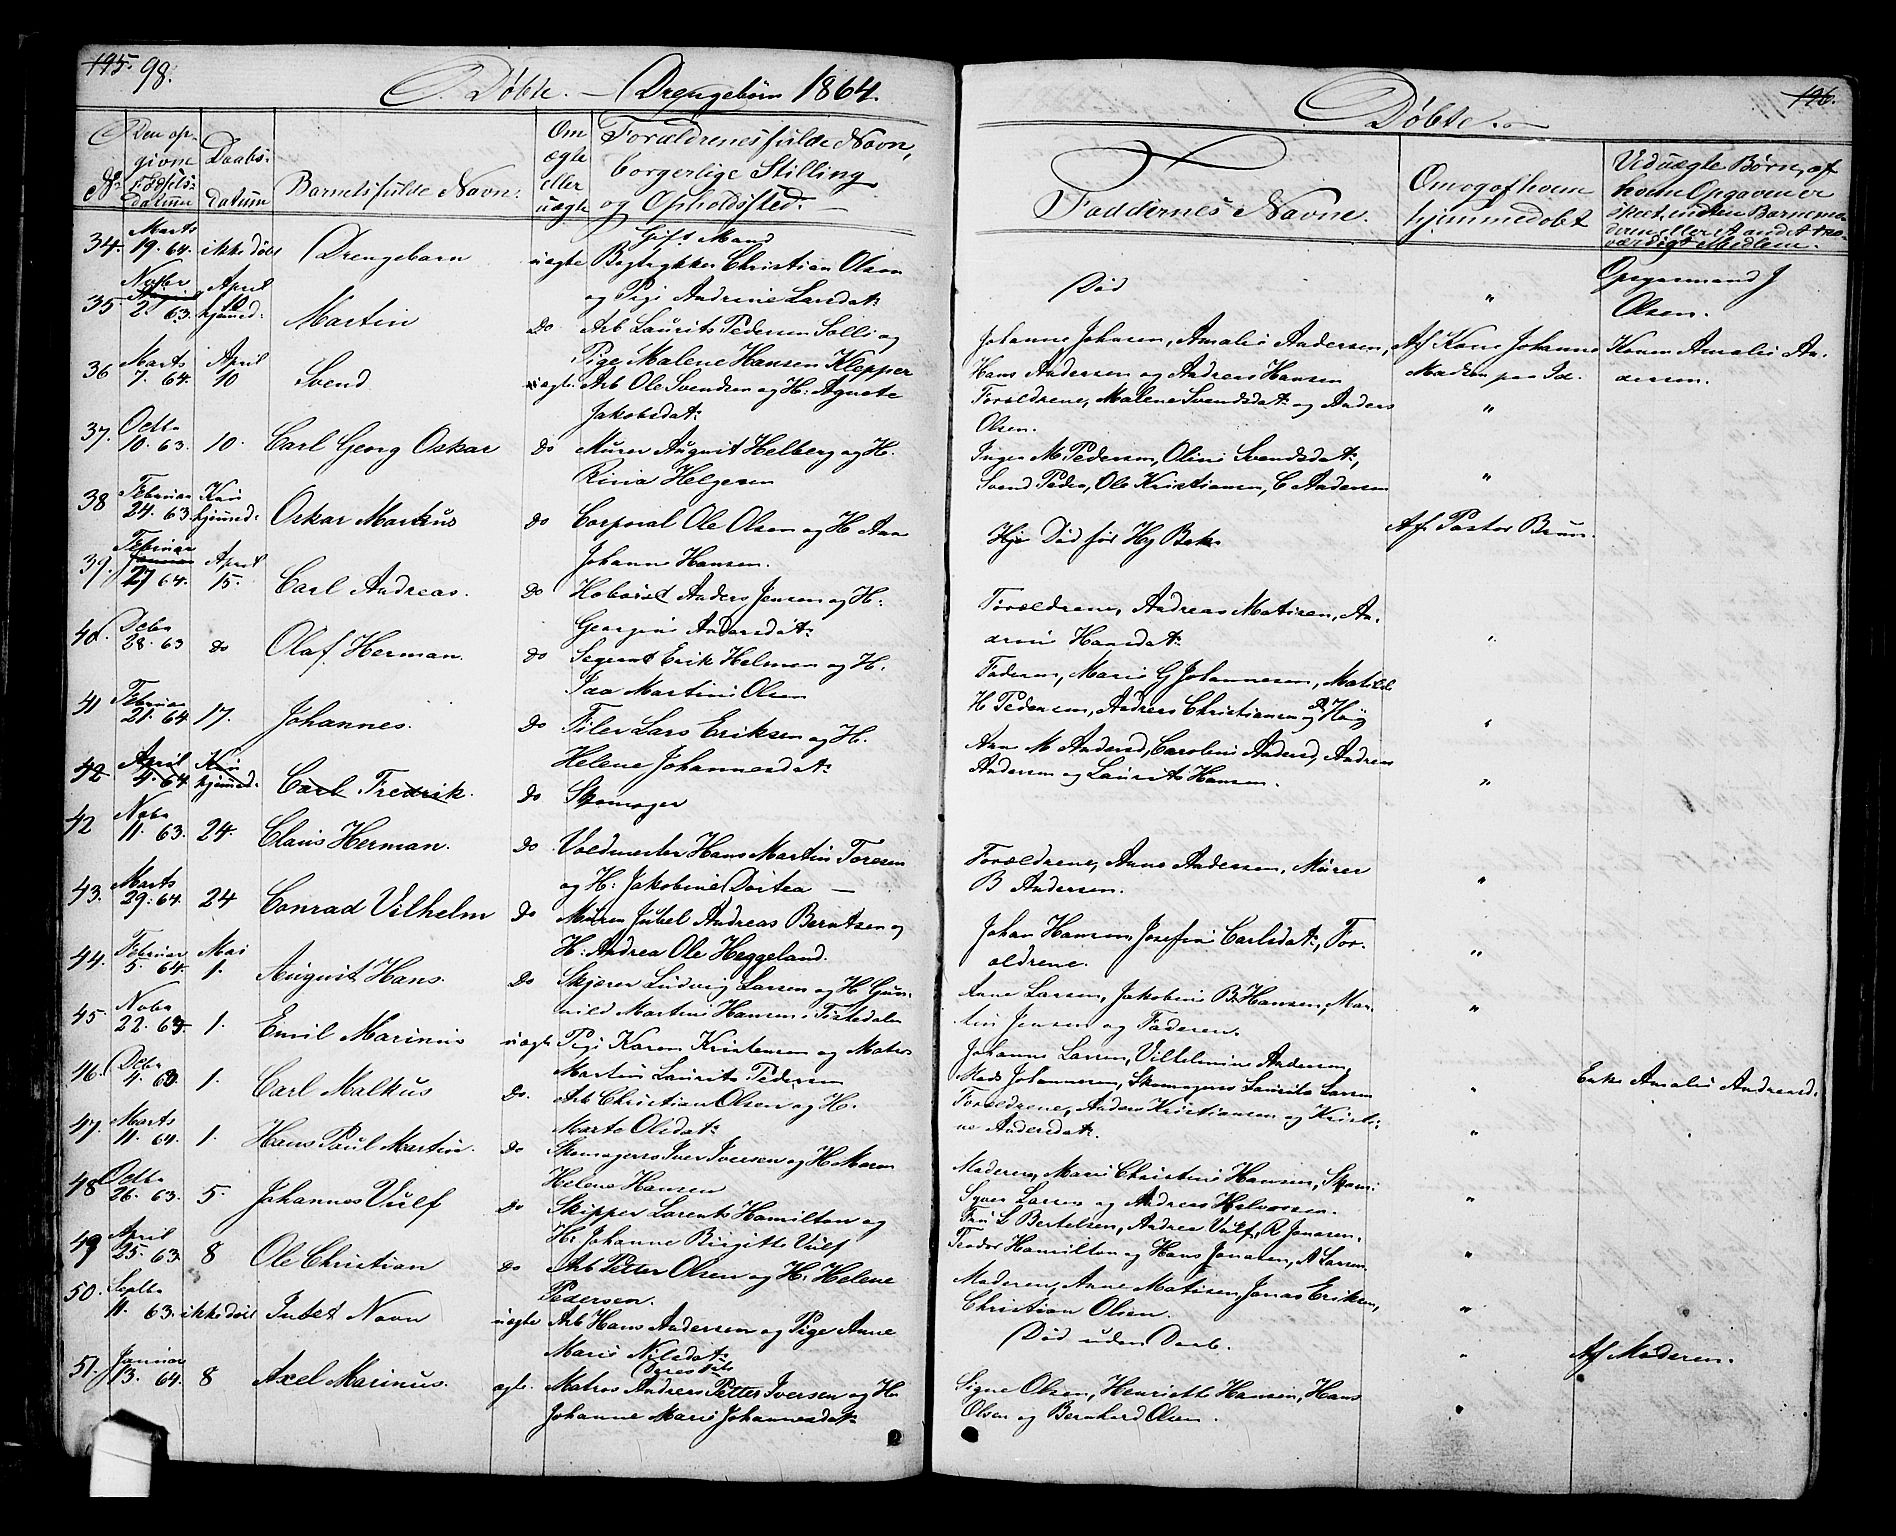 195. 98.
Døbte. — Drengebørn 1864.
No
Den op-
givne
Fødsels-
datum
Daabs-
datum
Barnets fulde Navn.
Om
ægte
eller
uægte
Forældrenes fulde Navn,
borgerlige Stilling
og Opholdssted.
34. Marts 19. 64. ikke døbt Drengebarn uægte Gift Mand
Bogtrykker Christian Olsen
og Pige Andrine Larsdat:
35. Novbr 2. 63. April 10. hjemmed: Martin do Arb Laurits Pedersen Solli og
Pige Malene Hansen Klepper
36 Marts 7. 64. April 10 Svend uægte Arb Ole Svendsen og H: Agnete
Jakobsdat:
37. Octbr 10. 63. 10. Carl Georg Oskar do Murer August Helberg og H.
Rina Helgesen
38 Februar 24. 63. hjemmed: Oskar Markus do Corporal Ole Olsen og H Ana
Johanne Hansen.
39. Februar 27 64. April 15. Carl Andreas. do Anders Jensen og H:
Georgine Andersdat:
40. Decbr 28. 63 do Olaf Herman. do Segeant Erik Helman og H.
Martine Olsen
41 Februar 21. 64 17. Johannes. do Filer Lars Eriksen og H.
Helene Johannesdat:
42 April 4. 64 hjemmed: Carl Fredrik. do Skomager
42 Novbr 11. 63. 24. Claus Herman. do Voldmester Hans Martin Toresen
og H: Jakobine Dortea —
43. Marts 29. 64. 24 Conrad Vilhelm do Murer Juhel Andreas Berntsen og
H. Andrea Ole Heggeland.
44. Februar 5. 64. Mai 1. August Hans. do Skjærer Ludvig Larsen og H Gun-
nild Martine Hansen i Tistedalen
45 Novbr 22. 63. 1. Emil Marinus uægte Pige Karen Kristensen og Matros
Martin Laurits Pedersen
46. Decbr 4. 63. 1. Carl Malkus do. Arb Christian Olsen og H.
Marte Olsdat:
47. Marts 11. 64. 1. Hans Paul Martin. do Skomagersv Iver Iversen og H Maren
Helene Hansen
48 Octbr 26. 63. 5. Johannes Vulf do Skipper Larents Hamilton og
H: Johanne Birgitte Vulf
49 April 25. 63. 8 Ole Christian do Arb Petter Olsen og H: Helene
Pedersen.
50. Septbr 11. 63. ikke døbt Intet Navn uægte Arb Hans Andersen og Pige Anne
Marie Nilsdat:
51. Januar 13. 64. 8 Axel Marinus. ægte. Matros Andreas Petter Iversen og H:
Johanne Marie Johannesdat:
196.
Døbte.
Faddernes Navne.
Om og af hvem
hjemmedøbt
Ved uægte Børn, af
hvem Opgaven er
skeet, enten Barnemo-
deren eller Andet tro-
værdigt Medlem.
Død " Opgavemand J
Olsen.
Johanne Johnsen, Amalie Andersen, Af Kone Johanne Konen Amalie An-
Hans Andersen og Andreas Hansen Madsen paa Id. dersen.
Forældrene, Malene Svendsdat: og Anders "
Olsen.
Inger M Pedersen, Oline Svendsdat:,
Svend Peder, Ole Kristiansen, C Andersen "
Død før Af Pastor Brun.
Forældrene, Andreas Matisen, An-
drine Hansdat: "
Faderen, Marie G Johannesen, Matilde
H Pedersen, Andreas Christiansen og "
Ane M Andersd, Caroline Andersd, Andreas
Andersen og Laurits Hansen. "
Forældrene, Anne Andersen, Murer
B Andersen. "
Johan Hansen, Josefine Carlsdat:, For-
ældrene. "
Anne Larsen, Jakobine B. Hansen, Mar-
tin Jensen og Faderen. "
Johanne Larsen, Vilhelmine Andersen,
Mads Johannesen, Skomagersv Laurits Larsen " Enke Amalie Andreasd.
Forældrene, Anders Kristiansen og Kristi-
ne Andersdat: "
Moderen, Marie Christine Hansen,
Syver Larsen og Andreas Halvorsen. "
Fru L Bertelsen, Andrea Vulf, R Jonasen,
Teodor Hamilton og Hans Jonasen, A Larsen "
Moderen, Anne Matisen, Jonas Eriksen,
Christian Olsen. "
Død uden Daab. " Af Moderen.
Signe Olsen, Henriette Hansen, Hans
Olsen og Bernhard Olsen. "